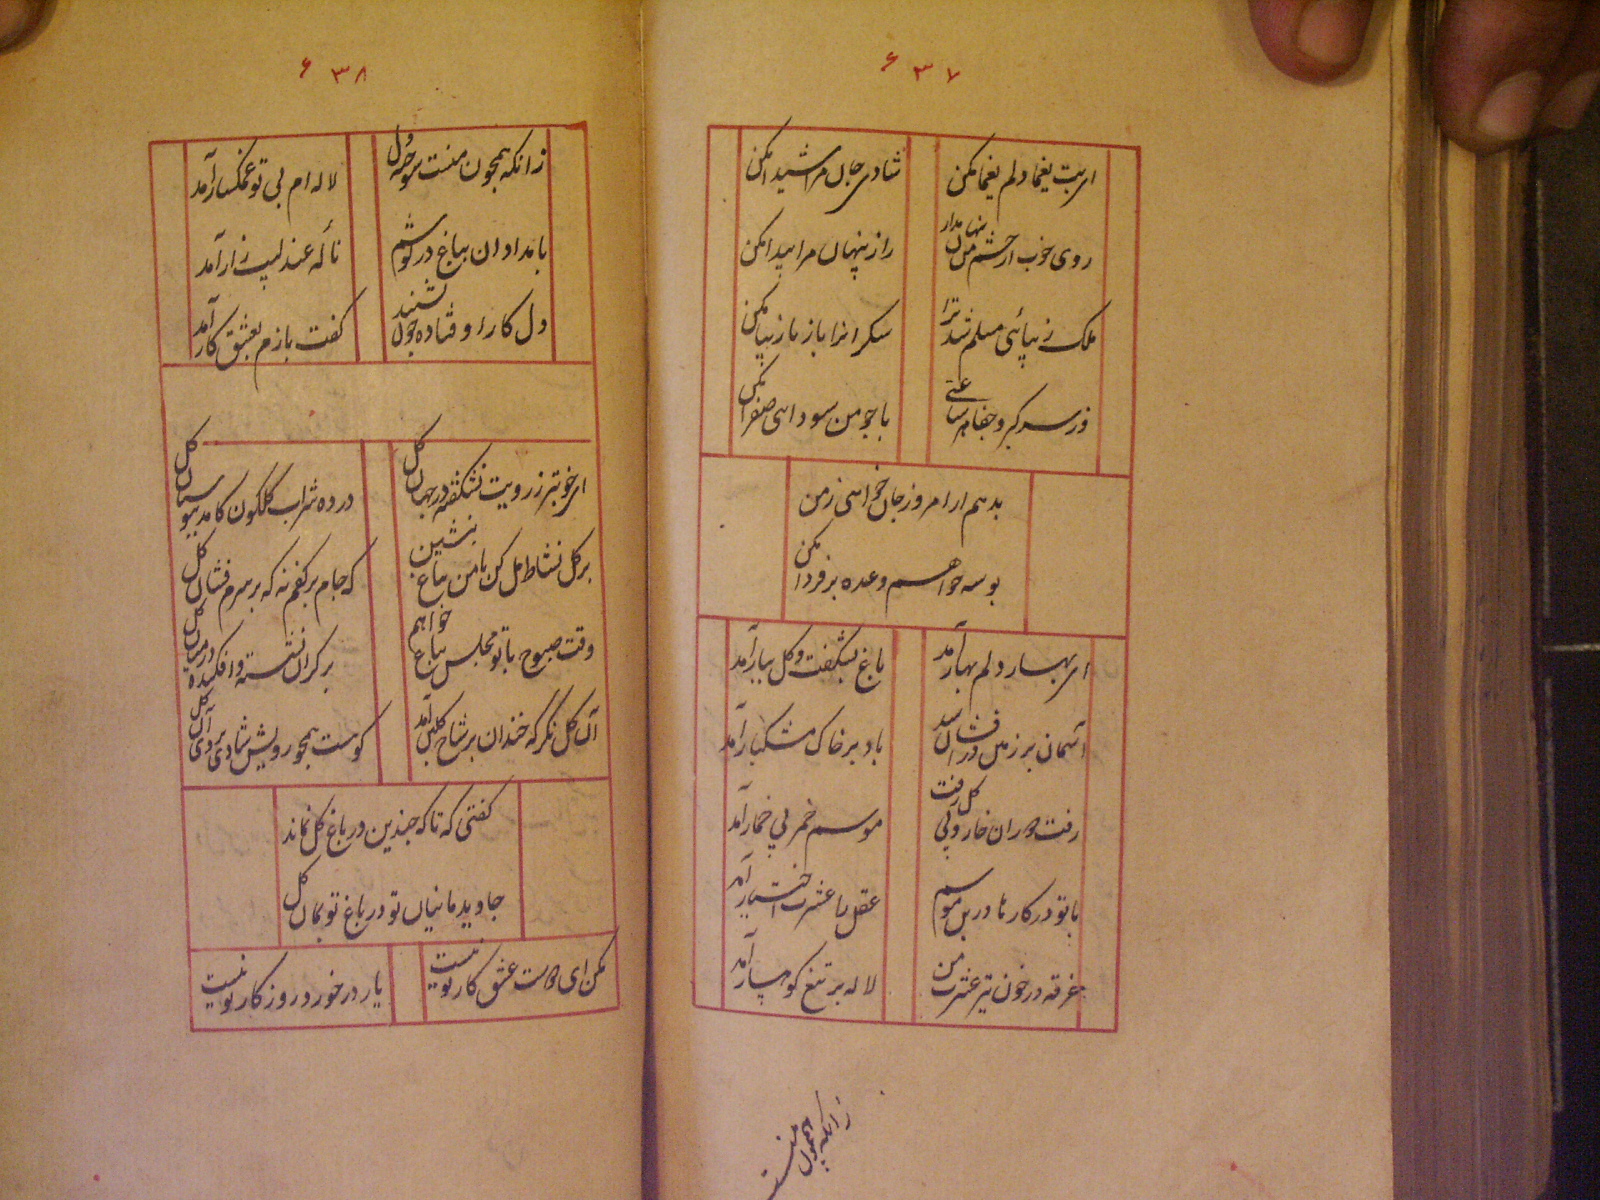 ۶۳۷
ای بت یغما دلم یغما مکن
شادی جان مرا شیدا مکن
روی خوب از چشم من پنهان مدار
راز پنهان مرا پیدا مکن
ملک زیبائی مسلم شد ترا
شکر انرا باز نازیبا مکن
وز سر کبر و جفا هر ساعتی
با چو من سودائی صفرا مکن
بدهم ار امروز جان خواهی زمن
بوسه خواهم وعده بر فردا مکن
ای بهار دلم بهار آمد
باغ بشکفت و گل ببار آمد
آسمان بر زمین در افشان شد
باد بر خاک مشکبار آمد
رفت دوران خار و پی گل رفت
موسم خمر بی خمار آمد
با تو در کار ما درین موسم
عقل با عشرت اختیار آمد
غرقه در خون تیر عشرت من
لاله بر تیغ کوهسار آمد
زانکه همچون منست
۶۳۸
زانکه همچون منست سوخته دل
لاله ام بی تو غمگسار آمد
بامدادان بباغ در گوشم
نالهٔ عندلیب زار آمد
دل کارا وفتاده چون بشنید
گفت بازم بعشق کار آمد
ای خوبتر ز رویت نشکفته در جهان گل
در ده شراب گلگون کامد ببوستان گل
بر گل نشاط مل کن با من بباغ بنشین
که جام بر کفم نه که بر سرم فشان گل
وقت صبوح با تو مجلس بباغ خواهم
بر کران نشسته و افکنده در میان گل
آن گل نگر که خندان بر شاخ گلبن آمد
گوئیست همچو رویش شادی بروی آن گل
گفتی که تا که چندین در باغ گل نماند
جاوید مانیان تو در باغ تو بمان گل
مکن ای دوست عشق کار تو نیست
یار در خورد روزگار تو نیست